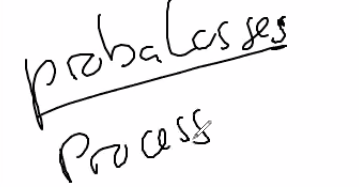 probaLasses
Process